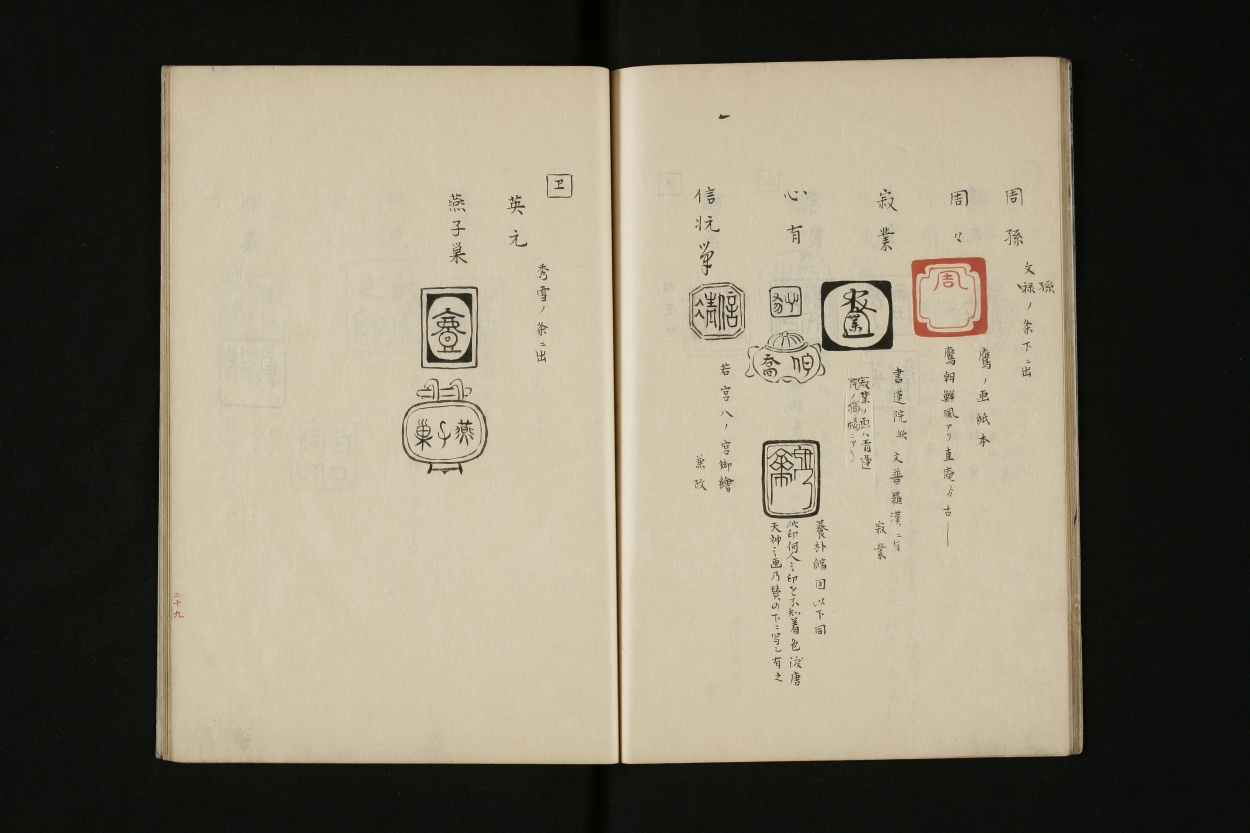 周孫
孫
文禄ノ条下ニ出
周々
周
鷹ノ画紙本
鷹朝鮮風アリ直庵ゟ古
寂業
寂業
書蓮院 文普羅漢ニ有
寂業
寂業ノ画ハ青蓮
院ノ
心有
伯喬
養朴縮図以下同
此印何人之印を不知着色渡唐
天神之画乃賛の下ニ写シ有之
信
信靖
若宮八ノ宮御繪
兼政
ヱ
英元
秀雪ノ条ニ出
燕子巣
燕子巣
二十九